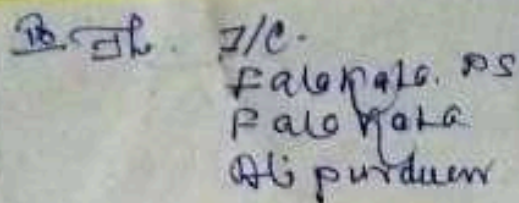 To The. I/C.
Falakata. PS
Falakata
Alipurduar